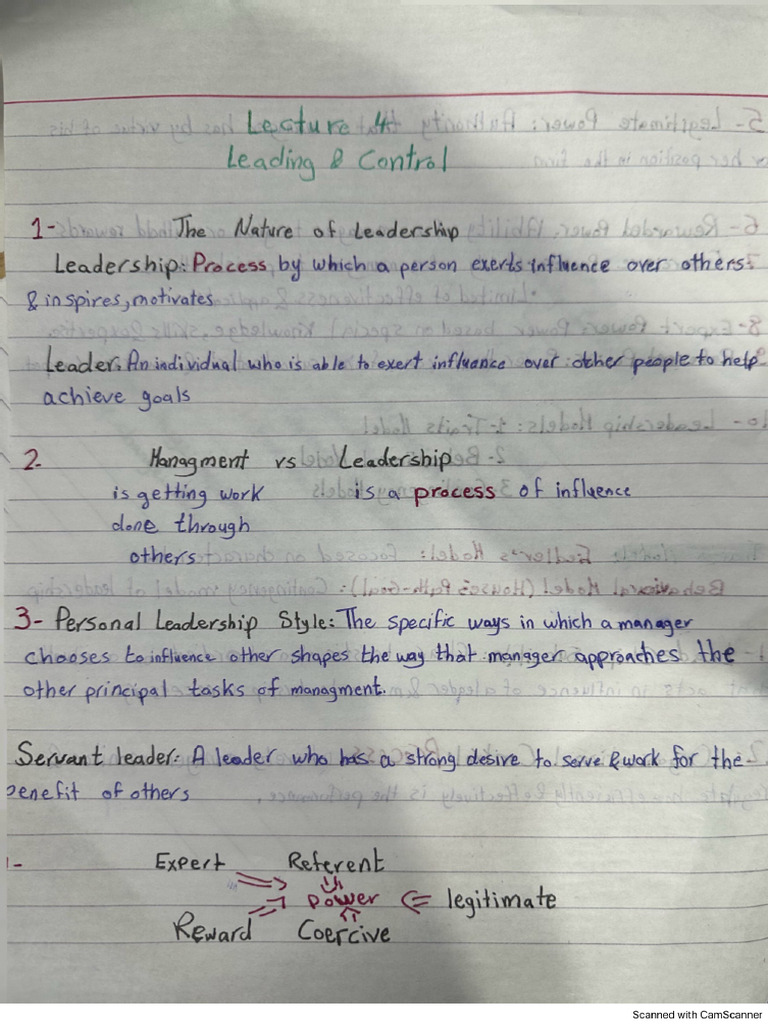 Lecture 4
Leading & Control
1- The Nature of Leadership
Leadership: Process by which a person exerts influence over others.
& inspires, motivates
Leader: An individual who is able to exert influence over other people to help
achieve goals
2- Managment vs Leadership
is getting work is a process of influence
done through
others
3- Personal Leadership Style: The specific ways in which a manager
chooses to influence other shapes the way that manager approaches the
other principal tasks of managment.
Servant leader: A leader who has a strong desire to serve & work for the
benefit of others
Expert Referent
power legitimate
Reward Coercive
Scanned with CamScanner